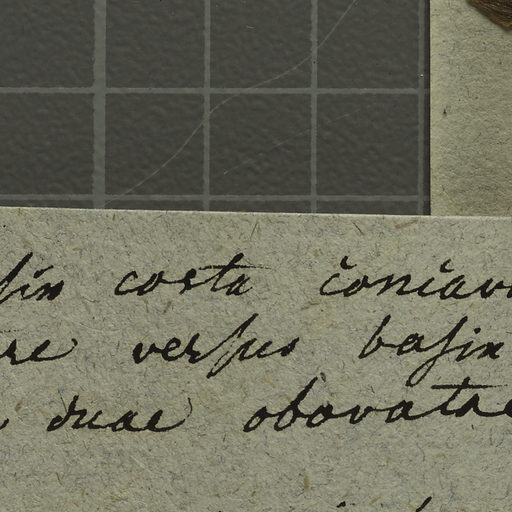 ſin costa concava
re verſus baſin
duae obovatae